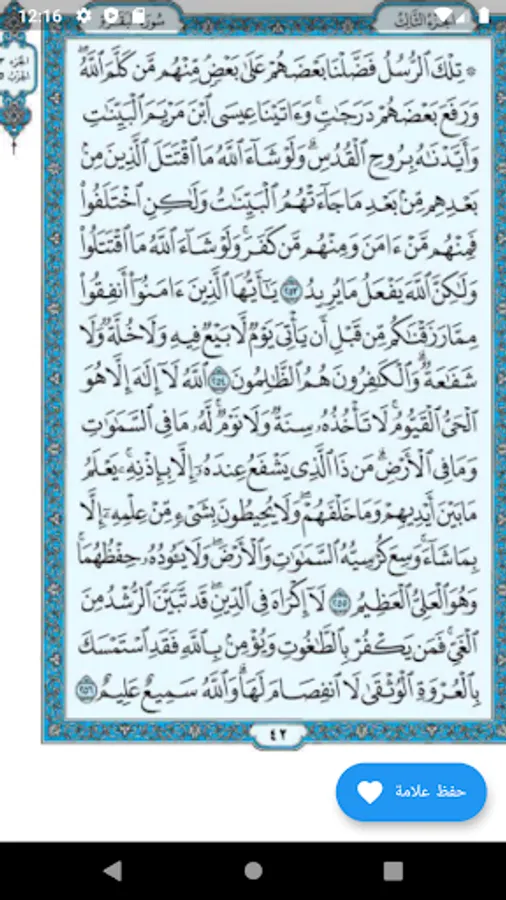 12:16
سورة البقرة
الجزء الثالث
الجزء ٣
الحزب ٥
۞ تِلْكَ ٱلرُّسُلُ فَضَّلْنَا بَعْضَهُمْ عَلَىٰ بَعْضٍ ۘ مِّنْهُم مَّن كَلَّمَ ٱللَّهُ ۖ
وَرَفَعَ بَعْضَهُمْ دَرَجَٰتٍ ۚ وَءَاتَيْنَا عِيسَى ٱبْنَ مَرْيَمَ ٱلْبَيِّنَٰتِ
وَأَيَّدْنَٰهُ بِرُوحِ ٱلْقُدُسِ ۗ وَلَوْ شَآءَ ٱللَّهُ مَا ٱقْتَتَلَ ٱلَّذِينَ مِنۢ
بَعْدِهِم مِّنۢ بَعْدِ مَا جَآءَتْهُمُ ٱلْبَيِّنَٰتُ وَلَٰكِنِ ٱخْتَلَفُوا۟
فَمِنْهُم مَّنْ ءَامَنَ وَمِنْهُم مَّن كَفَرَ ۚ وَلَوْ شَآءَ ٱللَّهُ مَا ٱقْتَتَلُوا۟
وَلَٰكِنَّ ٱللَّهَ يَفْعَلُ مَا يُرِيدُ ٢٥٣ يَٰٓأَيُّهَا ٱلَّذِينَ ءَامَنُوٓا۟ أَنفِقُوا۟
مِمَّا رَزَقْنَٰكُم مِّن قَبْلِ أَن يَأْتِىَ يَوْمٌ لَّا بَيْعٌ فِيهِ وَلَا خُلَّةٌ وَلَا
شَفَٰعَةٌ ۗ وَٱلْكَٰفِرُونَ هُمُ ٱلظَّٰلِمُونَ ٢٥٤ ٱللَّهُ لَآ إِلَٰهَ إِلَّا هُوَ
ٱلْحَىُّ ٱلْقَيُّومُ ۚ لَا تَأْخُذُهُۥ سِنَةٌ وَلَا نَوْمٌ ۚ لَّهُۥ مَا فِى ٱلسَّمَٰوَٰتِ
وَمَا فِى ٱلْأَرْضِ ۗ مَن ذَا ٱلَّذِى يَشْفَعُ عِندَهُۥٓ إِلَّا بِإِذْنِهِۦ ۚ يَعْلَمُ
مَا بَيْنَ أَيْدِيهِمْ وَمَا خَلْفَهُمْ ۖ وَلَا يُحِيطُونَ بِشَىْءٍ مِّنْ عِلْمِهِۦٓ إِلَّا
بِمَا شَآءَ ۚ وَسِعَ كُرْسِيُّهُ ٱلسَّمَٰوَٰتِ وَٱلْأَرْضَ ۖ وَلَا يَـُٔودُهُۥ حِفْظُهُمَا ۚ
وَهُوَ ٱلْعَلِىُّ ٱلْعَظِيمُ ٢٥٥ لَآ إِكْرَاهَ فِى ٱلدِّينِ ۖ قَد تَّبَيَّنَ ٱلرُّشْدُ مِنَ
ٱلْغَىِّ ۚ فَمَن يَكْفُرْ بِٱلطَّٰغُوتِ وَيُؤْمِنۢ بِٱللَّهِ فَقَدِ ٱسْتَمْسَكَ
بِٱلْعُرْوَةِ ٱلْوُثْقَىٰ لَا ٱنفِصَامَ لَهَا ۗ وَٱللَّهُ سَمِيعٌ عَلِيمٌ ٢٥٦
٤٢
حفظ علامة